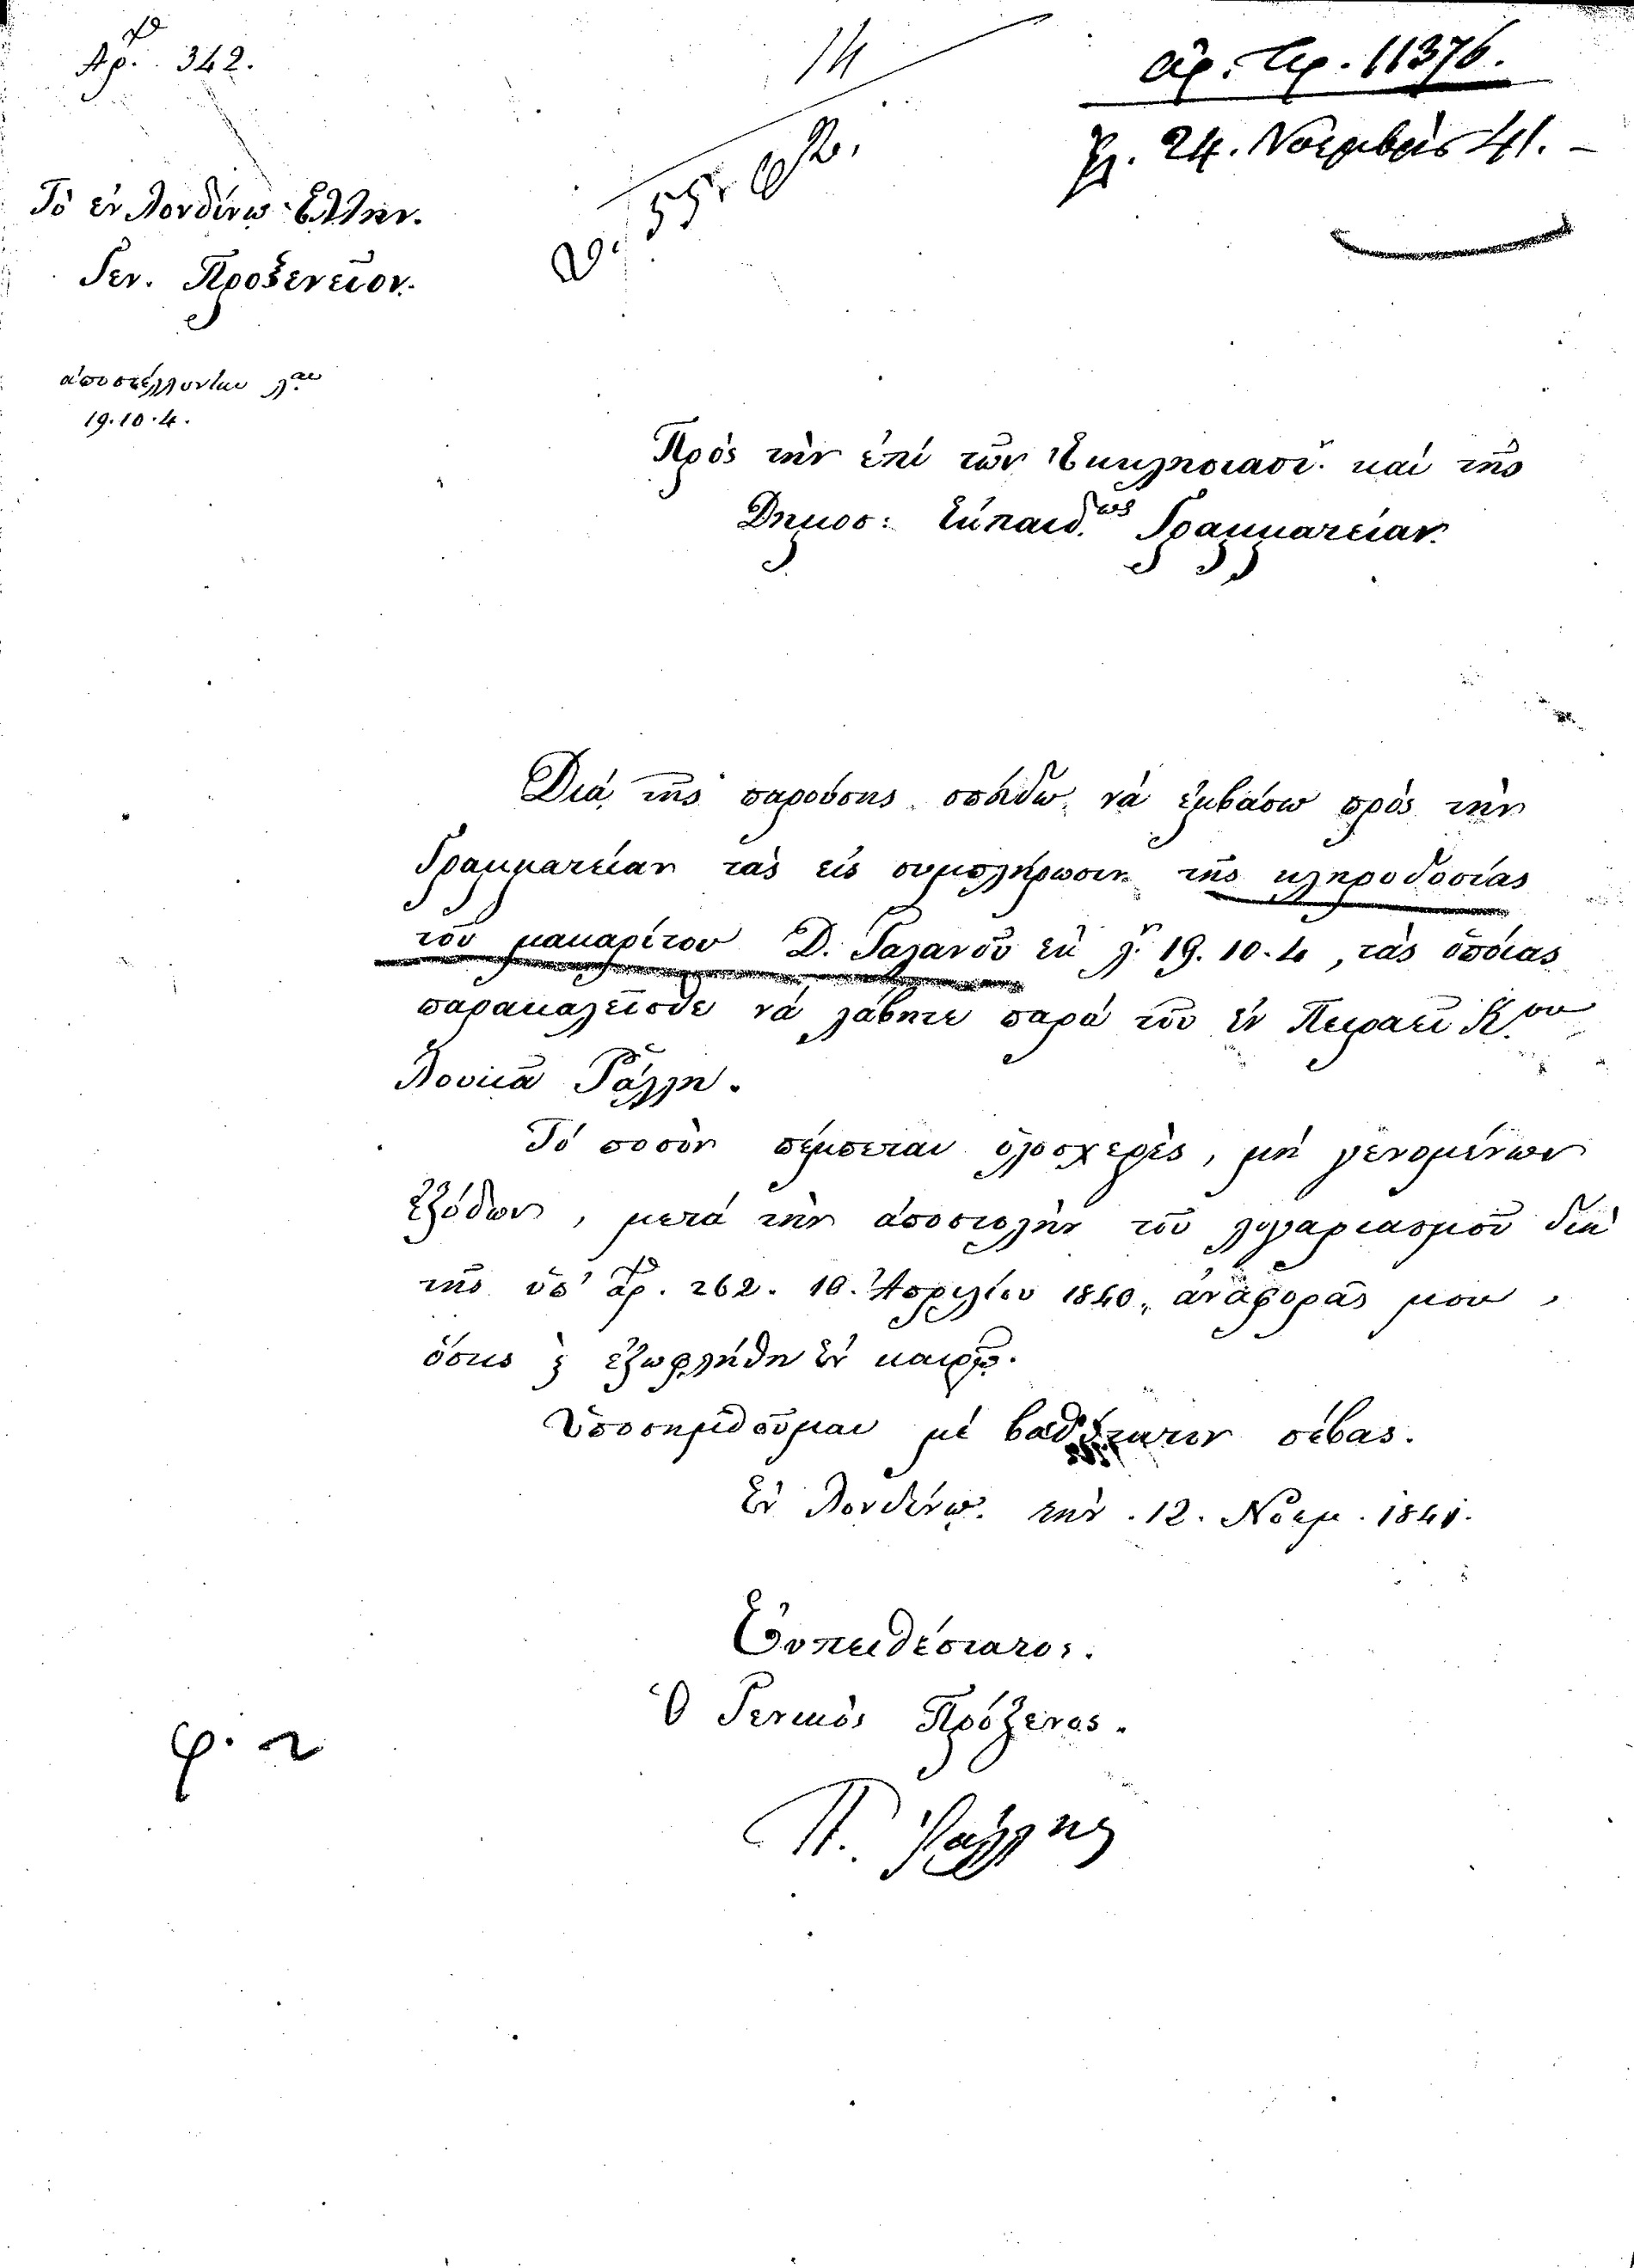 Ἀρ. 342.
14
ἀρ. πρ. 11376.
24. Νοεμβρίου 41. –
Τὸ ἐν Λονδίνῳ Ἑλλην.
Γεν. Προξενεῖον.
ἀποστέλλονται λ.αι
19.10.4.
Πρὸς τὴν ἐπὶ τῶν Ἐκκλησιαστ. καὶ τῆς
Δημοσ: Ἐκπαιδ.εως Γραμματείαν.
Διὰ τῆς παρούσης σπεύδω νὰ ἐμβάσω πρὸς τὴν
Γραμματείαν τὰς εἰς συμπλήρωσιν τῆς κληροδοσίας
τοῦ μακαρίτου Δ. Γαλανοῦ ἐκ λ. 19.10.4, τὰς ὁποίας
παρακαλεῖσθε νὰ λάβητε παρὰ τοῦ ἐν Πειραεῖ Κ.ου
Λουκᾶ Ῥάλλη.
Τὸ ποσὸν πέμπεται ὁλοσχερὲς, μὴ γενομένων
ἐξόδων, μετὰ τὴν ἀποστολὴν τοῦ λογαριασμοῦ διὰ
τῆς ὑπ' ἀρ. 262. 10. Ἀπριλίου 1840, ἀναφορᾶς μου,
ὅστις ἐξωφλήθη ἐν καιρῷ.
Ὑποσημειοῦμαι μὲ βαθύτατον σέβας.
Ἐν Λονδίνῳ. τὴν .12. Νοεμ. 1841.
Εὐπειθέστατος.
Ὁ Γενικὸς Πρόξενος.
Π. Ῥάλλης
φ.